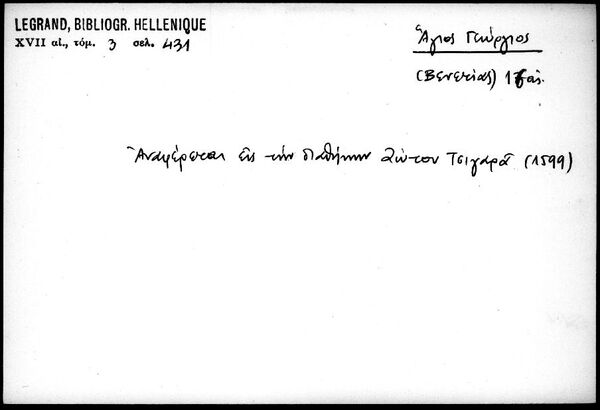 LEGRAND, BIBLIOGR. HELLENIQUE
XVII αἰ., τόμ. 3 σελ. 431
Ἅγιος Γεώργιος
(Βενετίας)
Ἀναφέρεται εἰς τὴν διαθήκην Ζώτου Τσιγαρᾶ (1599)